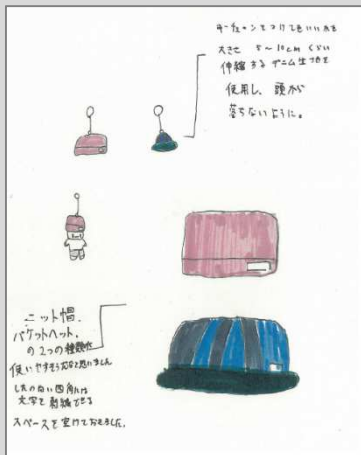 キーチェーンをつけてもいい
大きさ 5〜10cmくらい
伸縮するデニム生地を
使用し、頭が
落ちないように。
ニット帽、
バケットハット、
の2つの種類が
使いやすそうだなと思いました
したの白い四角には
文字を刺繍できる
スペースを空けておきました。